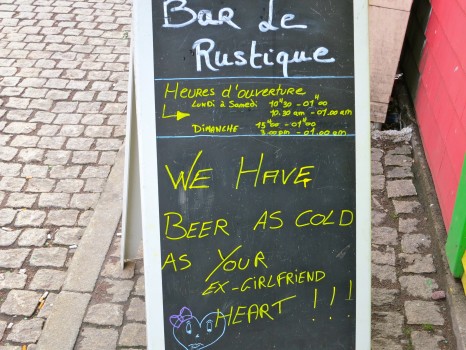 Bar Le
Rustique
Heures d'ouverture
Lundi à Samedi 10H30 - 01H00
10:30 am - 01.00 am
DIMANCHE 15H00 - 01H00
3.00 pm - 01.00 am
WE HAVE
BEER AS COLD
AS YOUR
EX-GIRLFRIEND
HEART !!!